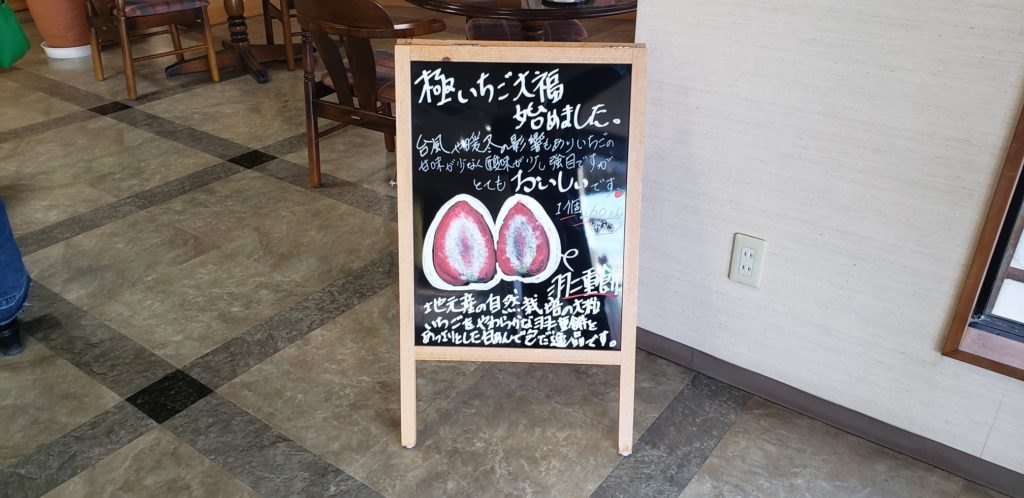 極いちご大福
始めました。
台風や暖冬の影響もありいちごの
甘味が少なく酸味が少し強目ですが
とてもおいしいです。
1個
税込
羽二重餅
地元産の自然栽培の大粒
いちごをやわらかな羽二重餅と
あっさりとした白あんで包だ逸品です。